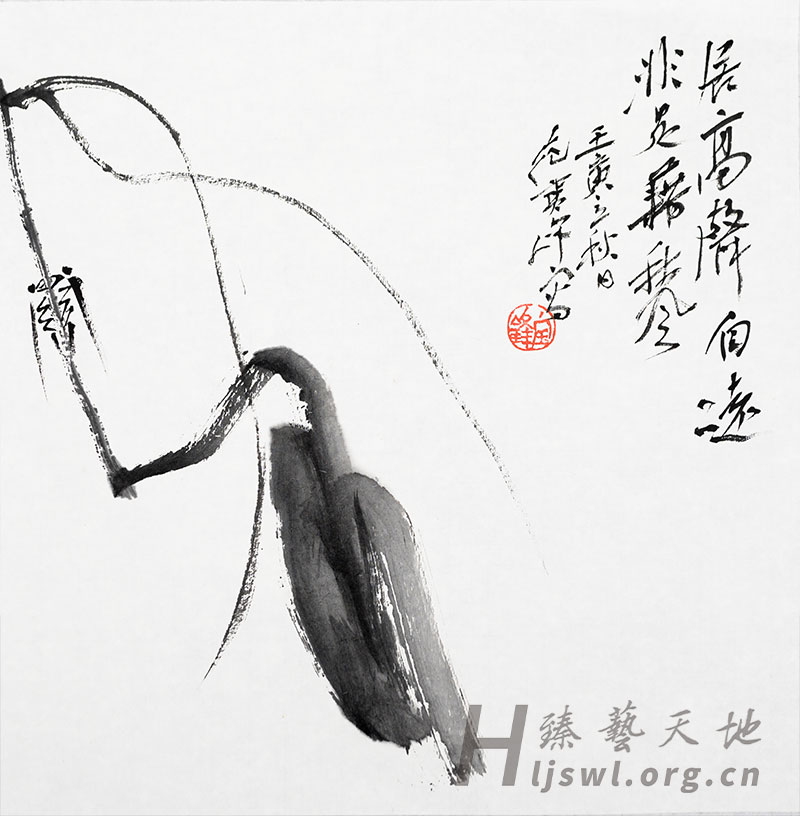 居高聲自遠
非是藉秋風
壬寅立秋日
寫
臻藝天地
Hljswl.org.cn